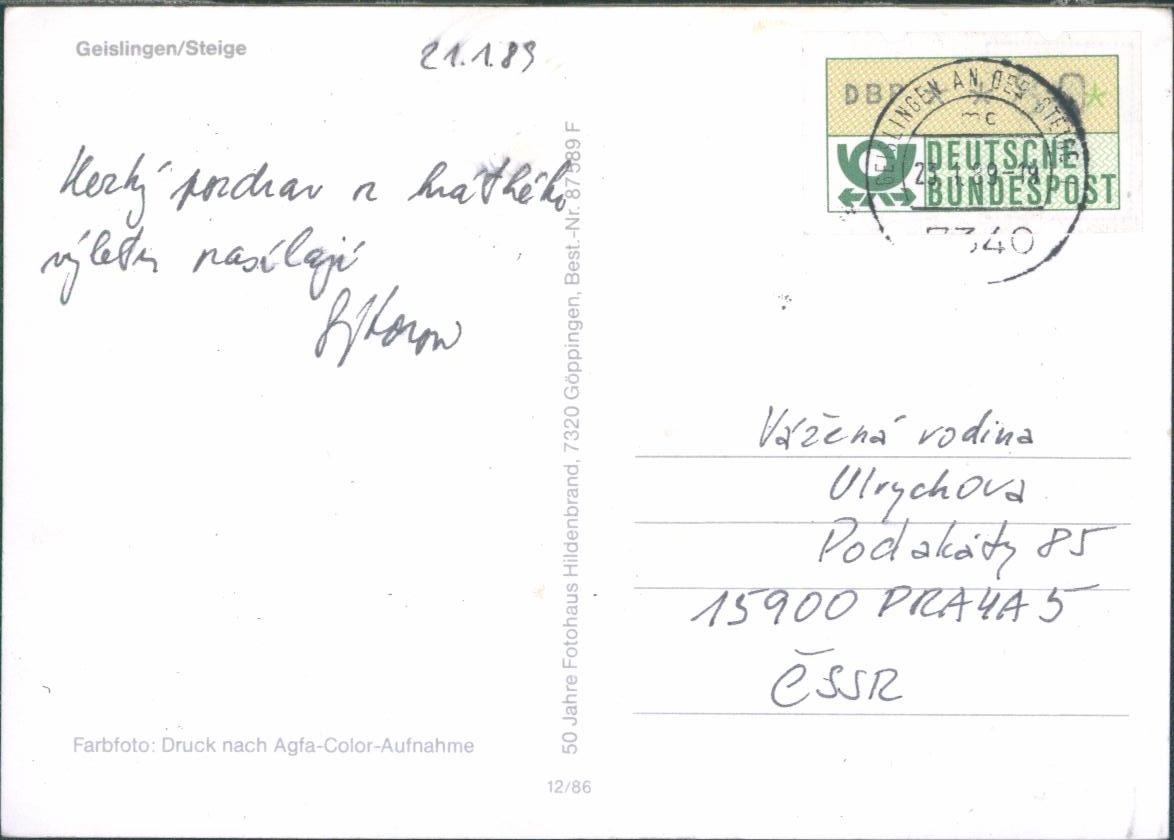 Geislingen/Steige
21.1.89
Hezký pozdrav z krátkého
výletu zasílají
Vážená rodina
Ulrychova
Pod akáty 85
15900 PRAHA 5
ČSSR
DEUTSCHE
BUNDESPOST
GEISLINGEN AN DER STEIGE
mc
23.1.89-19
7340
50 Jahre Fotohaus Hildenbrand, 7320 Göppingen, Best.-Nr. 87589 F
Farbfoto: Druck nach Agfa-Color-Aufnahme
12/86